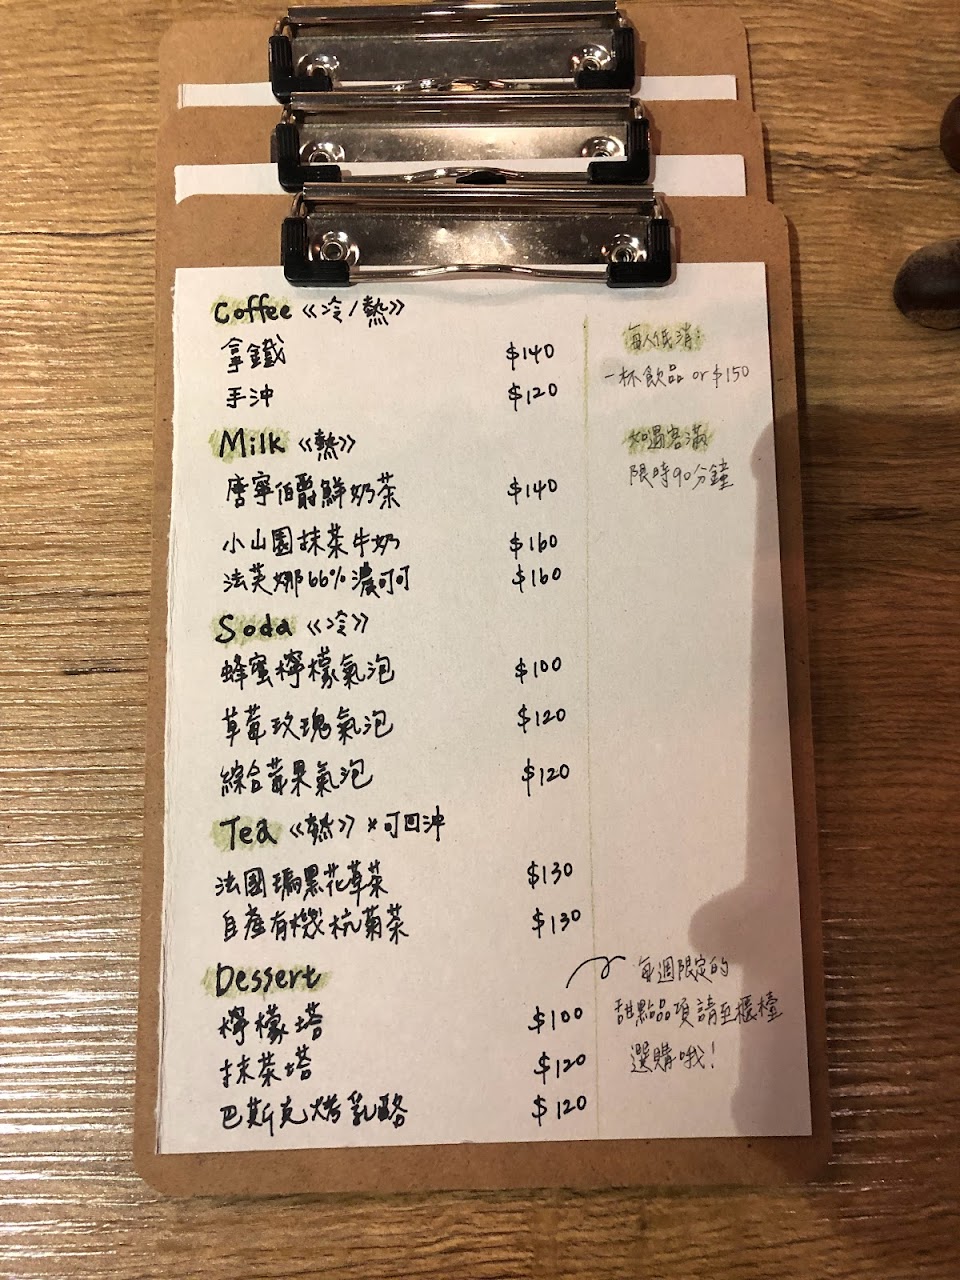 Coffee《冷/熱》
拿鐵 $140
手沖 $120
Milk《熱》
唐寧伯爵鮮奶茶 $140
小山園抹茶牛奶 $160
法芙娜66%濃可可 $160
Soda《冷》
蜂蜜檸檬氣泡 $100
草莓玫瑰氣泡 $120
綜合莓果氣泡 $120
Tea《熱》*可回沖
法國瑪黑花草茶 $130
自產有機杭菊茶 $130
Dessert
檸檬塔 $100
抹茶塔 $120
巴斯克烤乳酪 $120
每人低消:
一杯飲品 or $150
如遇客滿
限時90分鐘
每週限定的
甜點品項請至櫃檯
選購哦!